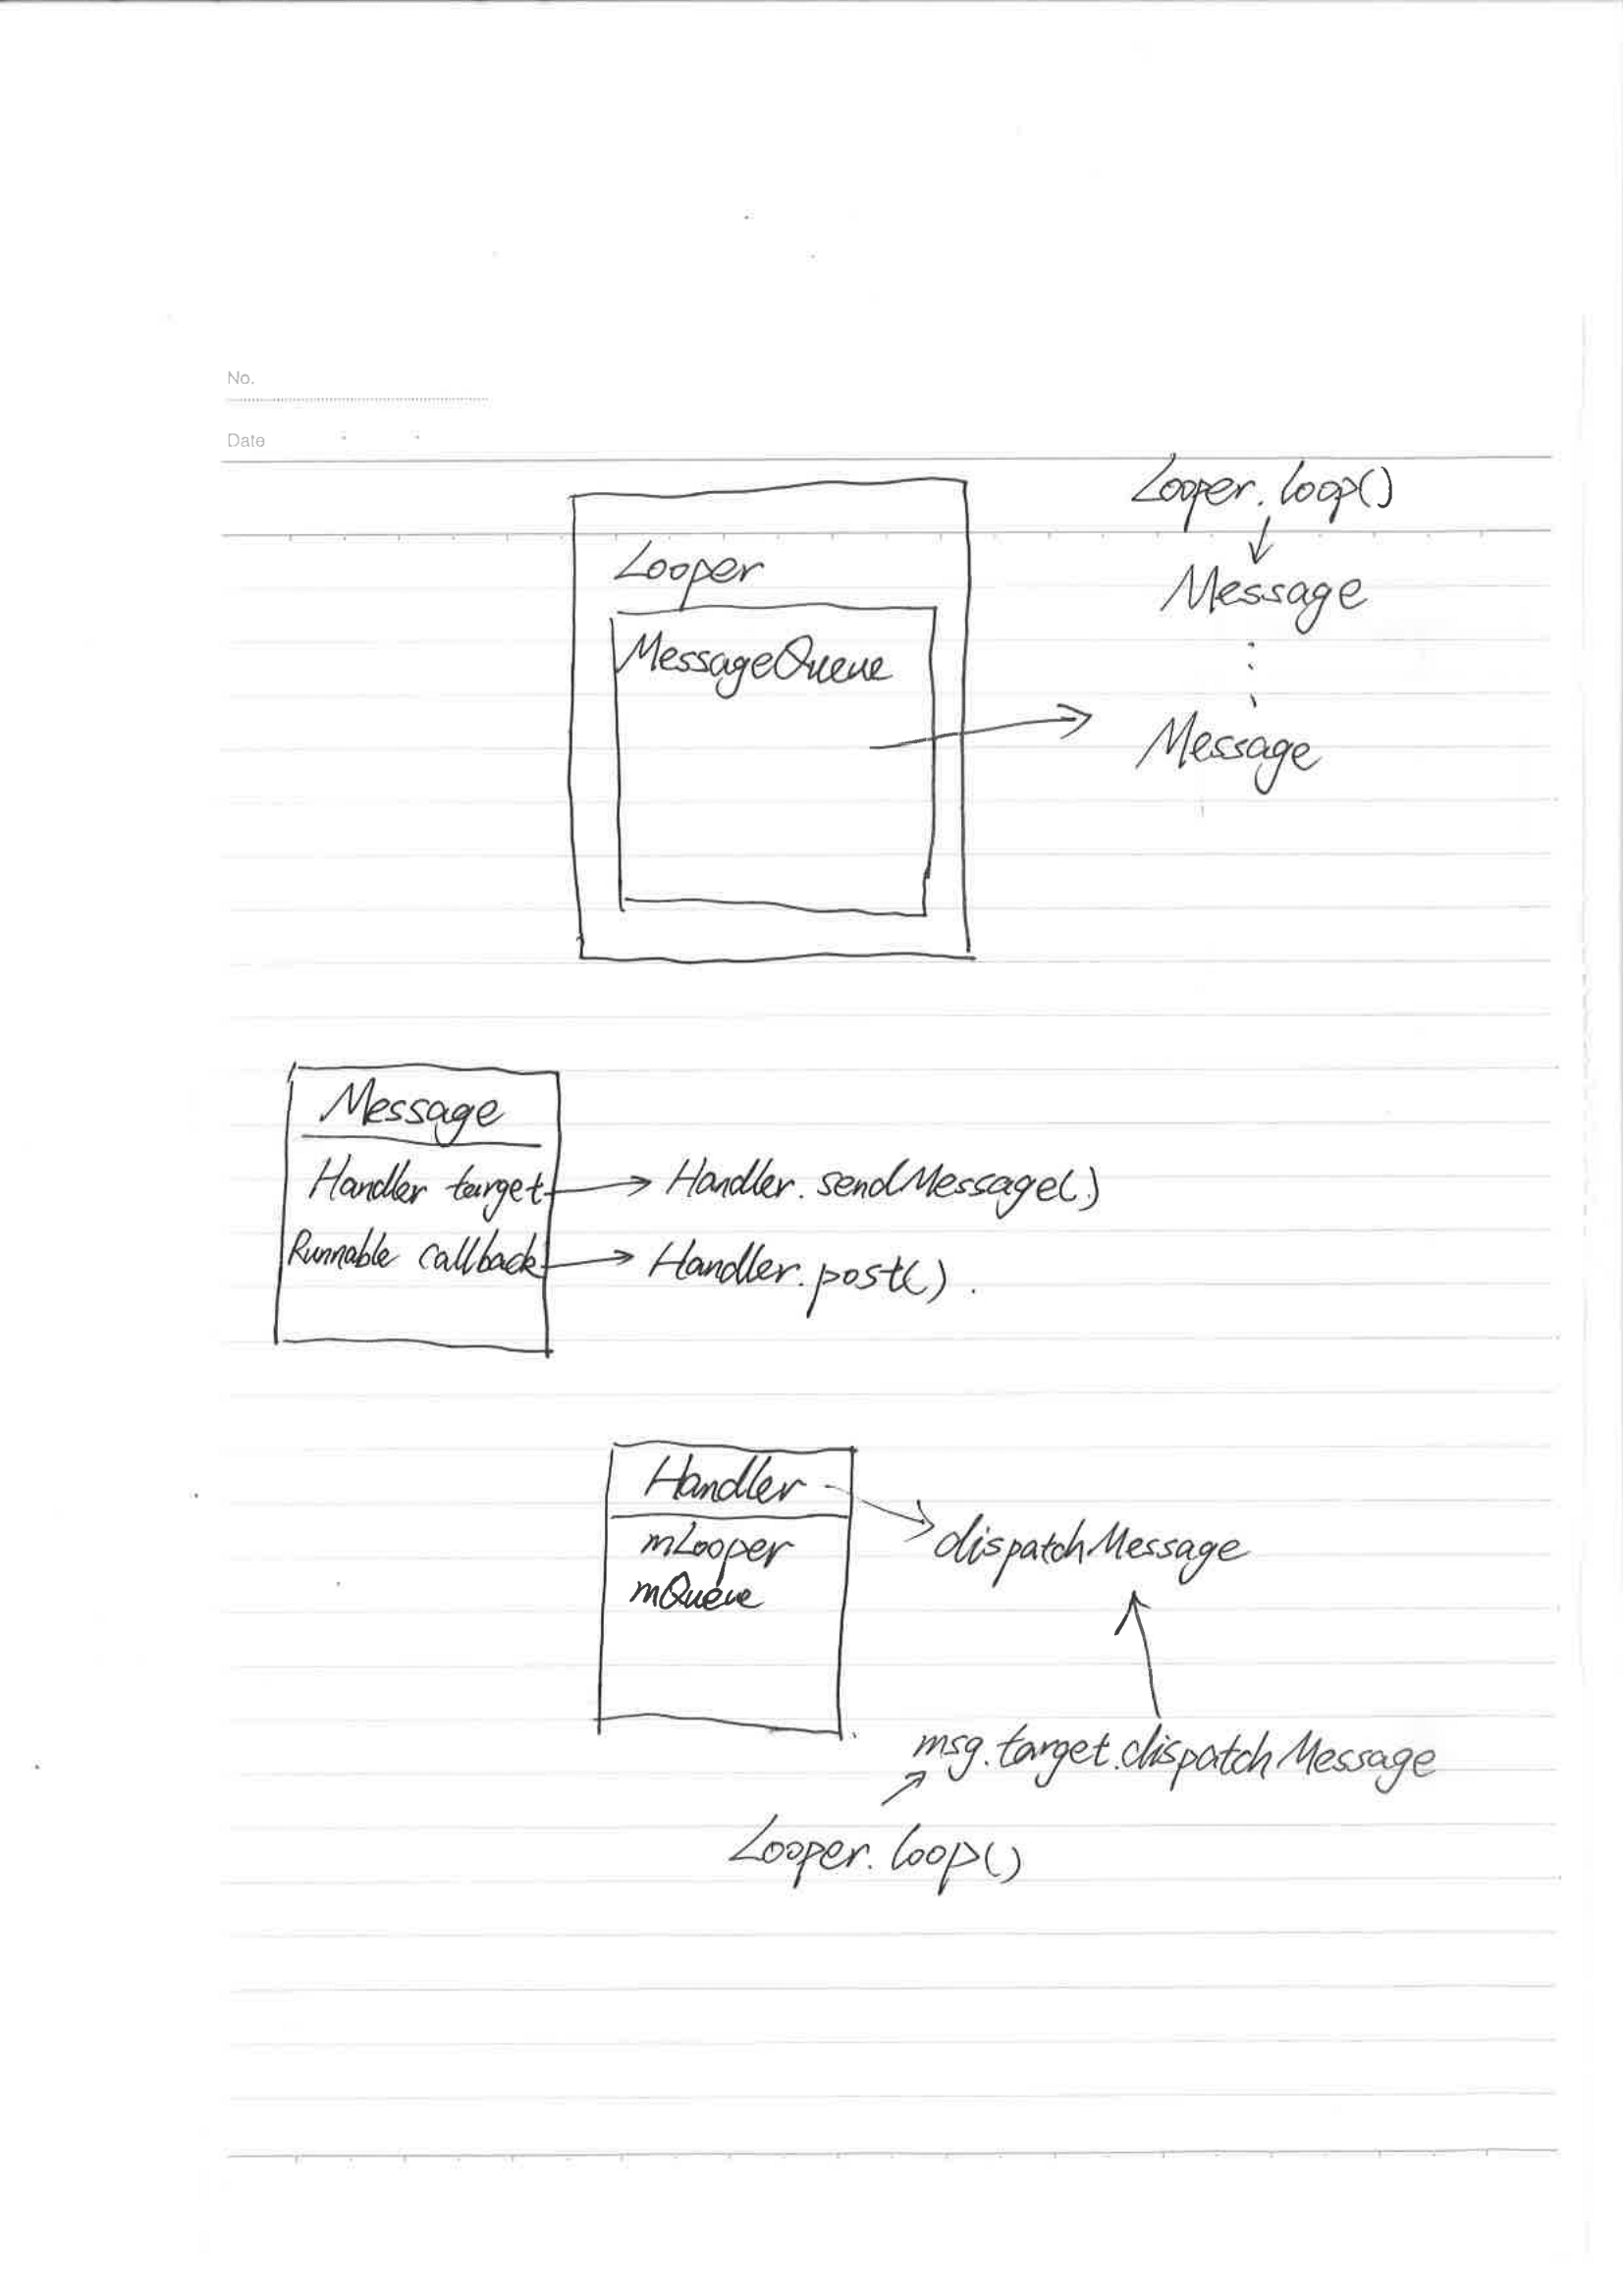 No.
Date
Looper.loop()
Looper
Message
MessageQueue
Message
Message
Handler target
Handler.sendMessage(.)
Runnable callback
Handler.post().
Handler
dispatchMessage
mLooper
mQueue
msg.target.dispatchMessage
Looper.loop()